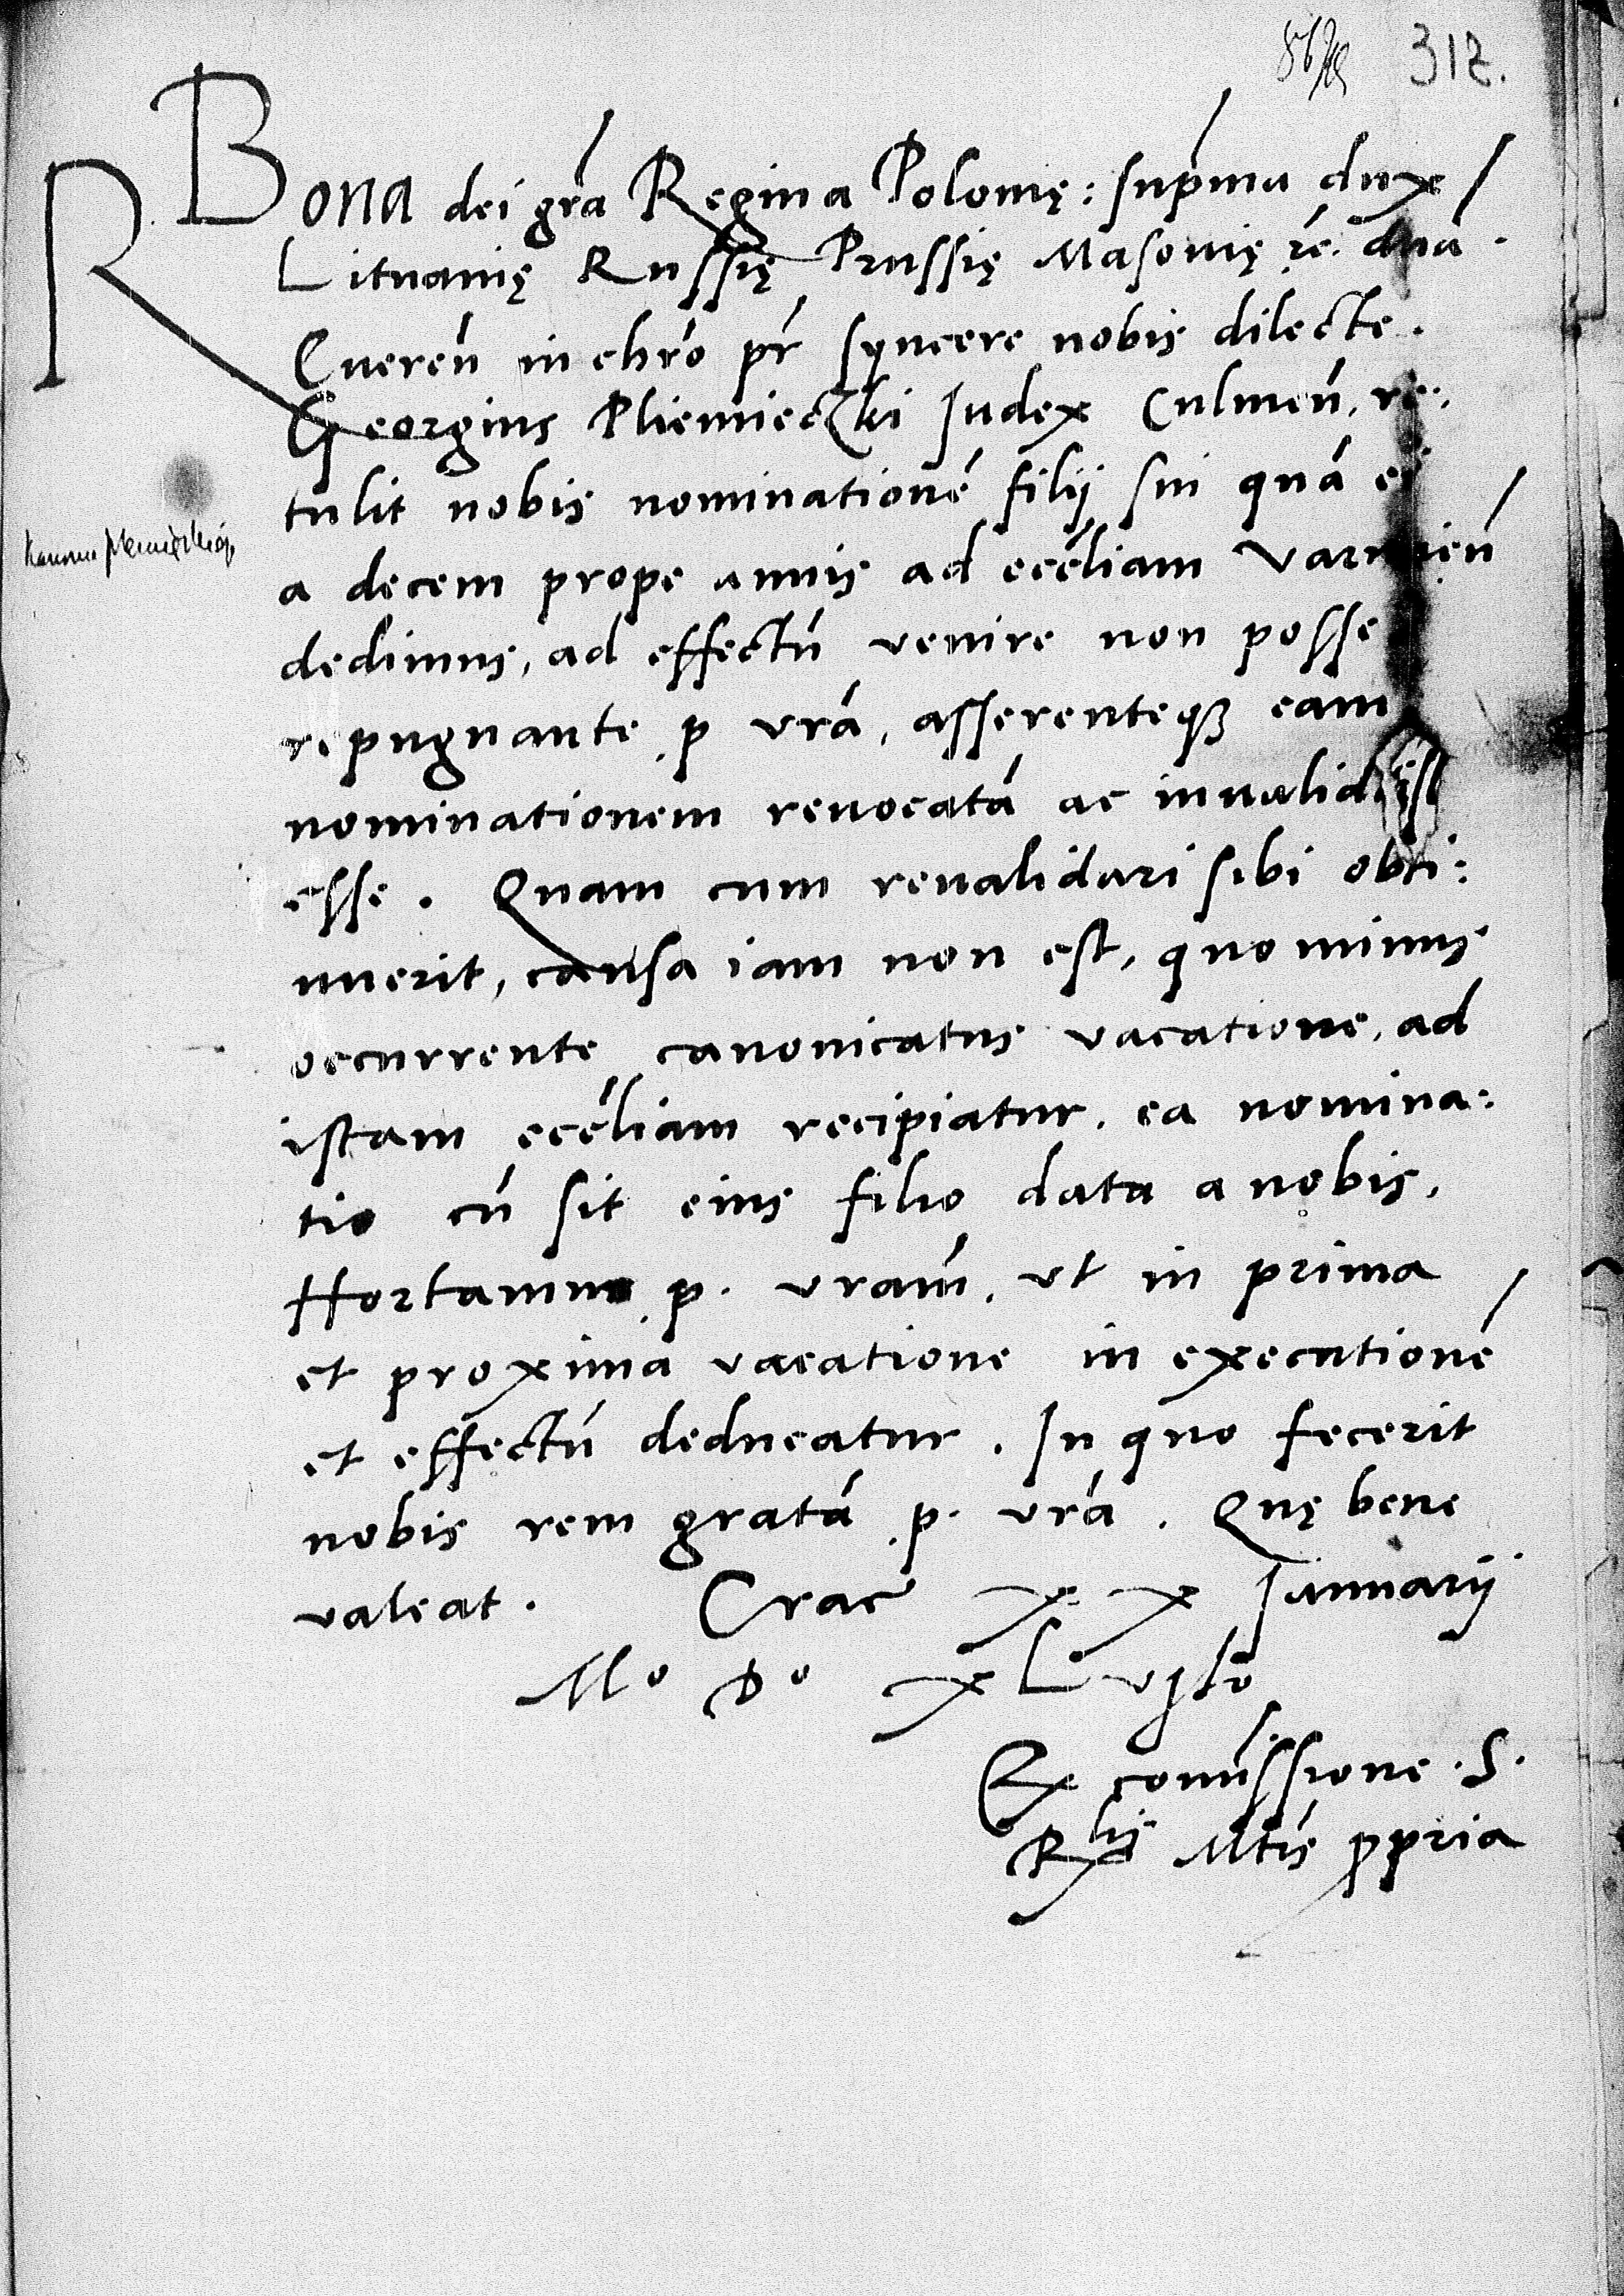 312.
Bona dei gra Regina Polonię: supma dux
Lituanię Russię Prussię Masouię rc. dna.
R
Cueren in chro pr syncere nobis dilecte.
Georgius Pliemieczki Judex Culmen. re:
tulit nobis nominatione filij sui qua ei
a decem prope annis ad eccliam Varmien
dedimus, ad effectu venire non posse
repugnante p vra, asserenteqз eam
nominationem reuocata ac inualida
esse. Quam cum reualidari sibi obti:
nuerit, causa iam non est, quominus
occurrente canonicatus vacatione, ad
istam eccliam recipiatur. ea nomina:
tio cu sit eius filio data a nobis.
Hortamur p. vram. vt in prima
et proxima vacatione in executione
et effectu deducatur. In quo fecerit
nobis rem grata p. vra. Quę bene
valeat. Crac xx Januarij
Mº Dº xLvjto
Ex comissione .S.
Rlis Mtis ppria